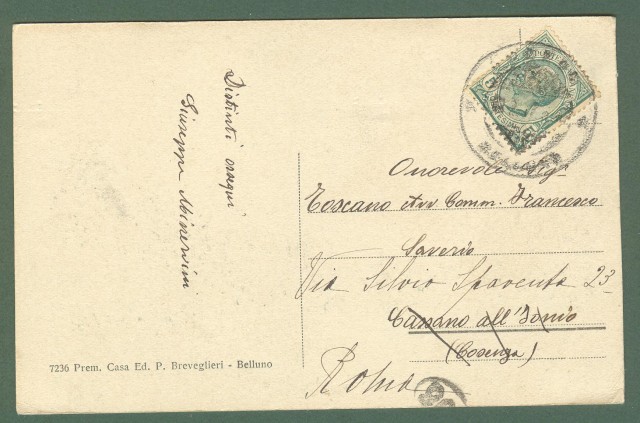 Distinti ossequi
Giuseppe Minervini
Onorevole Sig.
Toscano Avv Comm. Francesco
Saverio
Via Silvio Spaventa 23
Cassano all'Ionio
(Cosenza)
Roma
7236 Prem. Casa Ed. P. Breveglieri - Belluno